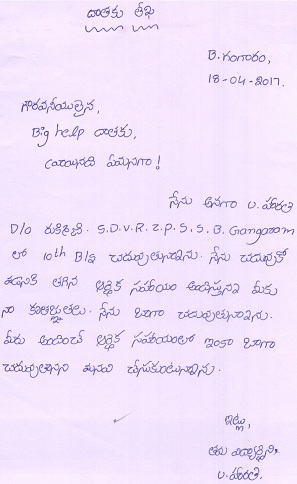 దాతకు లేఖ
B. గంగారం,
18-04-2017.
గౌరవనీయులైన,
Big help దాతకు,
వ్రాయునది ఏమనగా!
నేను అనగా U. హారతి
D/o రుక్మిణి. S.D.V.R.Z.P.S.S. B. Gangaram
లో 10th B/s చదువుతున్నాను. నేను చదువుకో
డానికి తగిన ఆర్థిక సహాయం అందిస్తున్న మీకు
నా కృతజ్ఞతలు. నేను బాగా చదువుతున్నాను.
మీరు అందించే ఆర్థిక సహాయంలో ఇంకా బాగా
చదువుతానని మనవి చేసుకుంటున్నాను.
ఇట్లు,
తమ విద్యార్థిని,
U. హారతి.